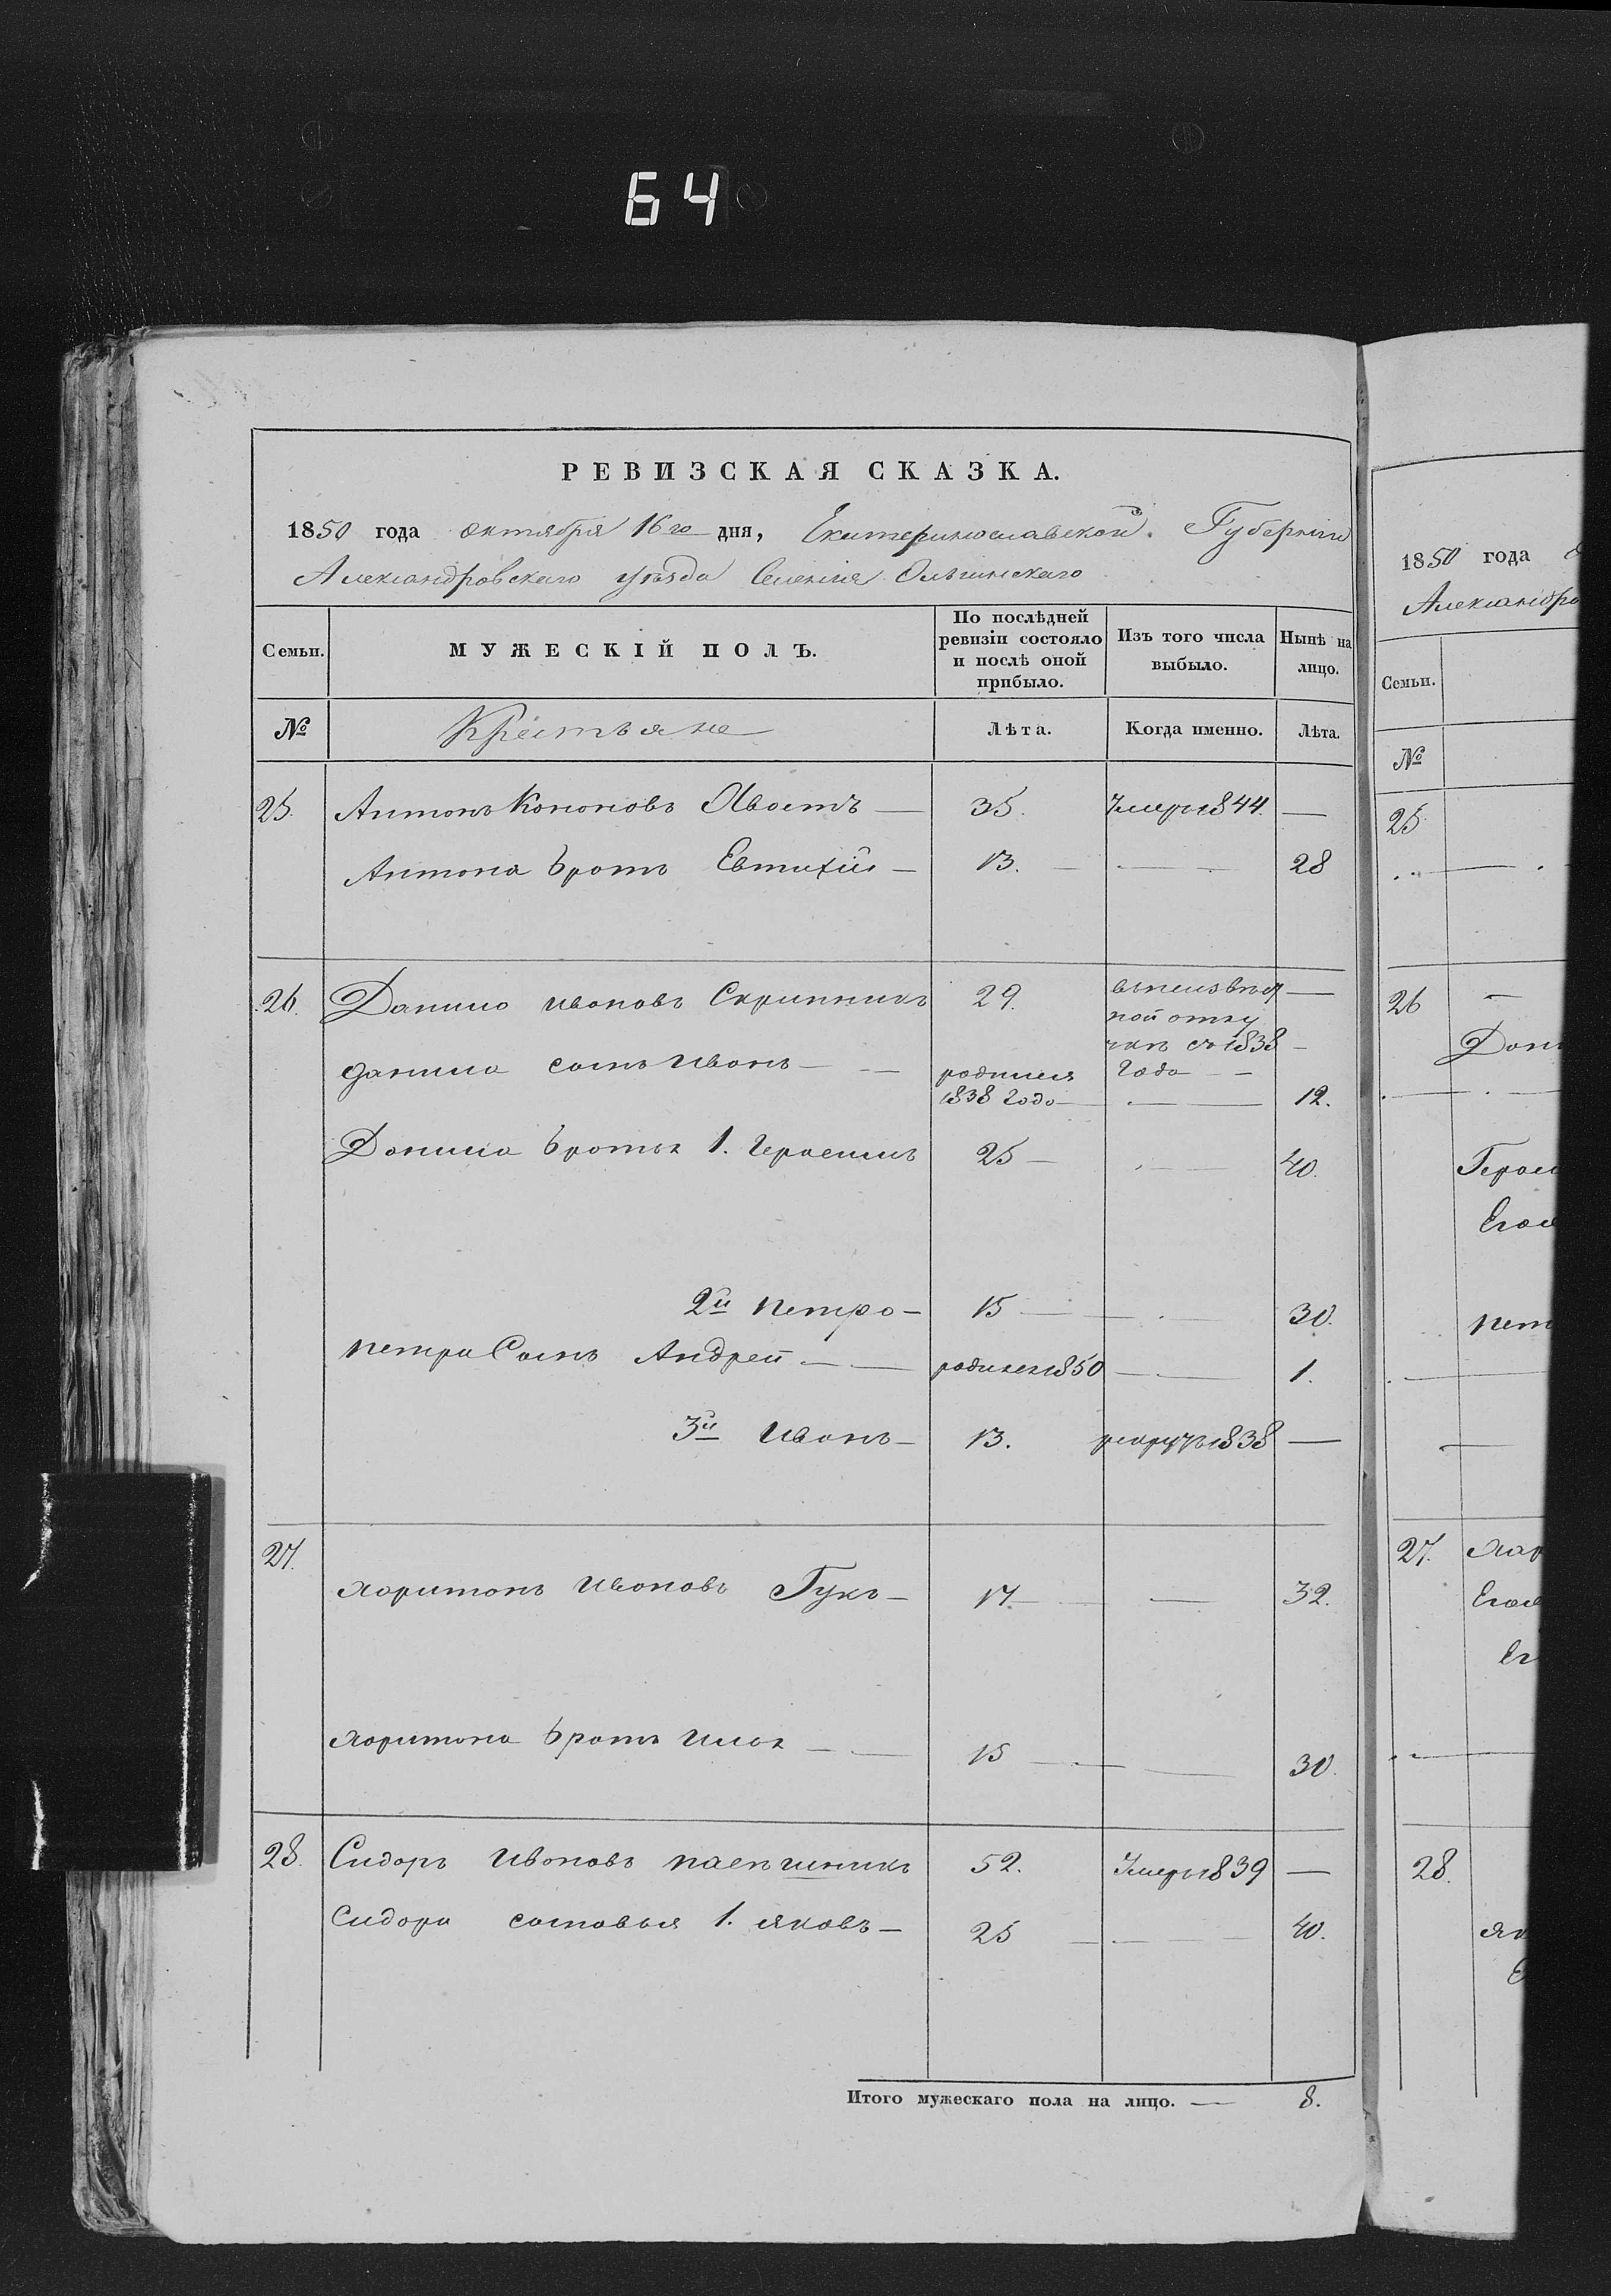 64
РЕВИЗСКАЯ СКАЗКА.
1850 года октября 16го дня, Екатеринославской Губернии
Александровскаго уѣзда Селения Ольгинскаго
Семьи. МУЖЕСКІЙ ПОЛЪ. По послѣдней ревизіи состояло и послѣ оной прибыло. Изъ того числа выбыло. Нынѣ на лицо.
№ Крестьяне Лѣта. Когда именно. Лѣта.
25. Антонъ Кононовъ Хвостъ — 35. Умеръ 1844. —
Антона братъ Евтихій — 13. — 28
26. Данило Ивановъ Скрипникъ 29. —
съ 1838
года
Данила сынъ Иванъ — родился
1838 года — 12.
Данила братья 1. Герасимъ 25 — 40.
2й Петро — 15 — 30.
Петра Сынъ Андрей — родился 1850 — 1.
3й Иванъ — 13. рекрутъ 1838 —
27. Харитонъ Ивановъ Гукъ — 17 — 32.
Харитона братъ Илья — 15 — 30.
28. Сидоръ Ивановъ 52. Умеръ 1839 —
Сидора сыновья 1. Яковъ — 25 — 40.
Итого мужескаго пола на лицо. — 8.
1850 года
Александро
Семьи.
№
25
26
Дан
Герас
Егоже
Пет
27. Хар
Егоже
Ег
28.
Як